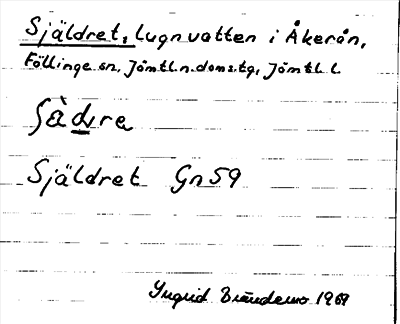 Själdret, lugnvatten i Åkerån,
Föllinge sn, Jämtl.n.doms.tg, Jämtl. l.
Själdret Gn 59
Ingrid 1969